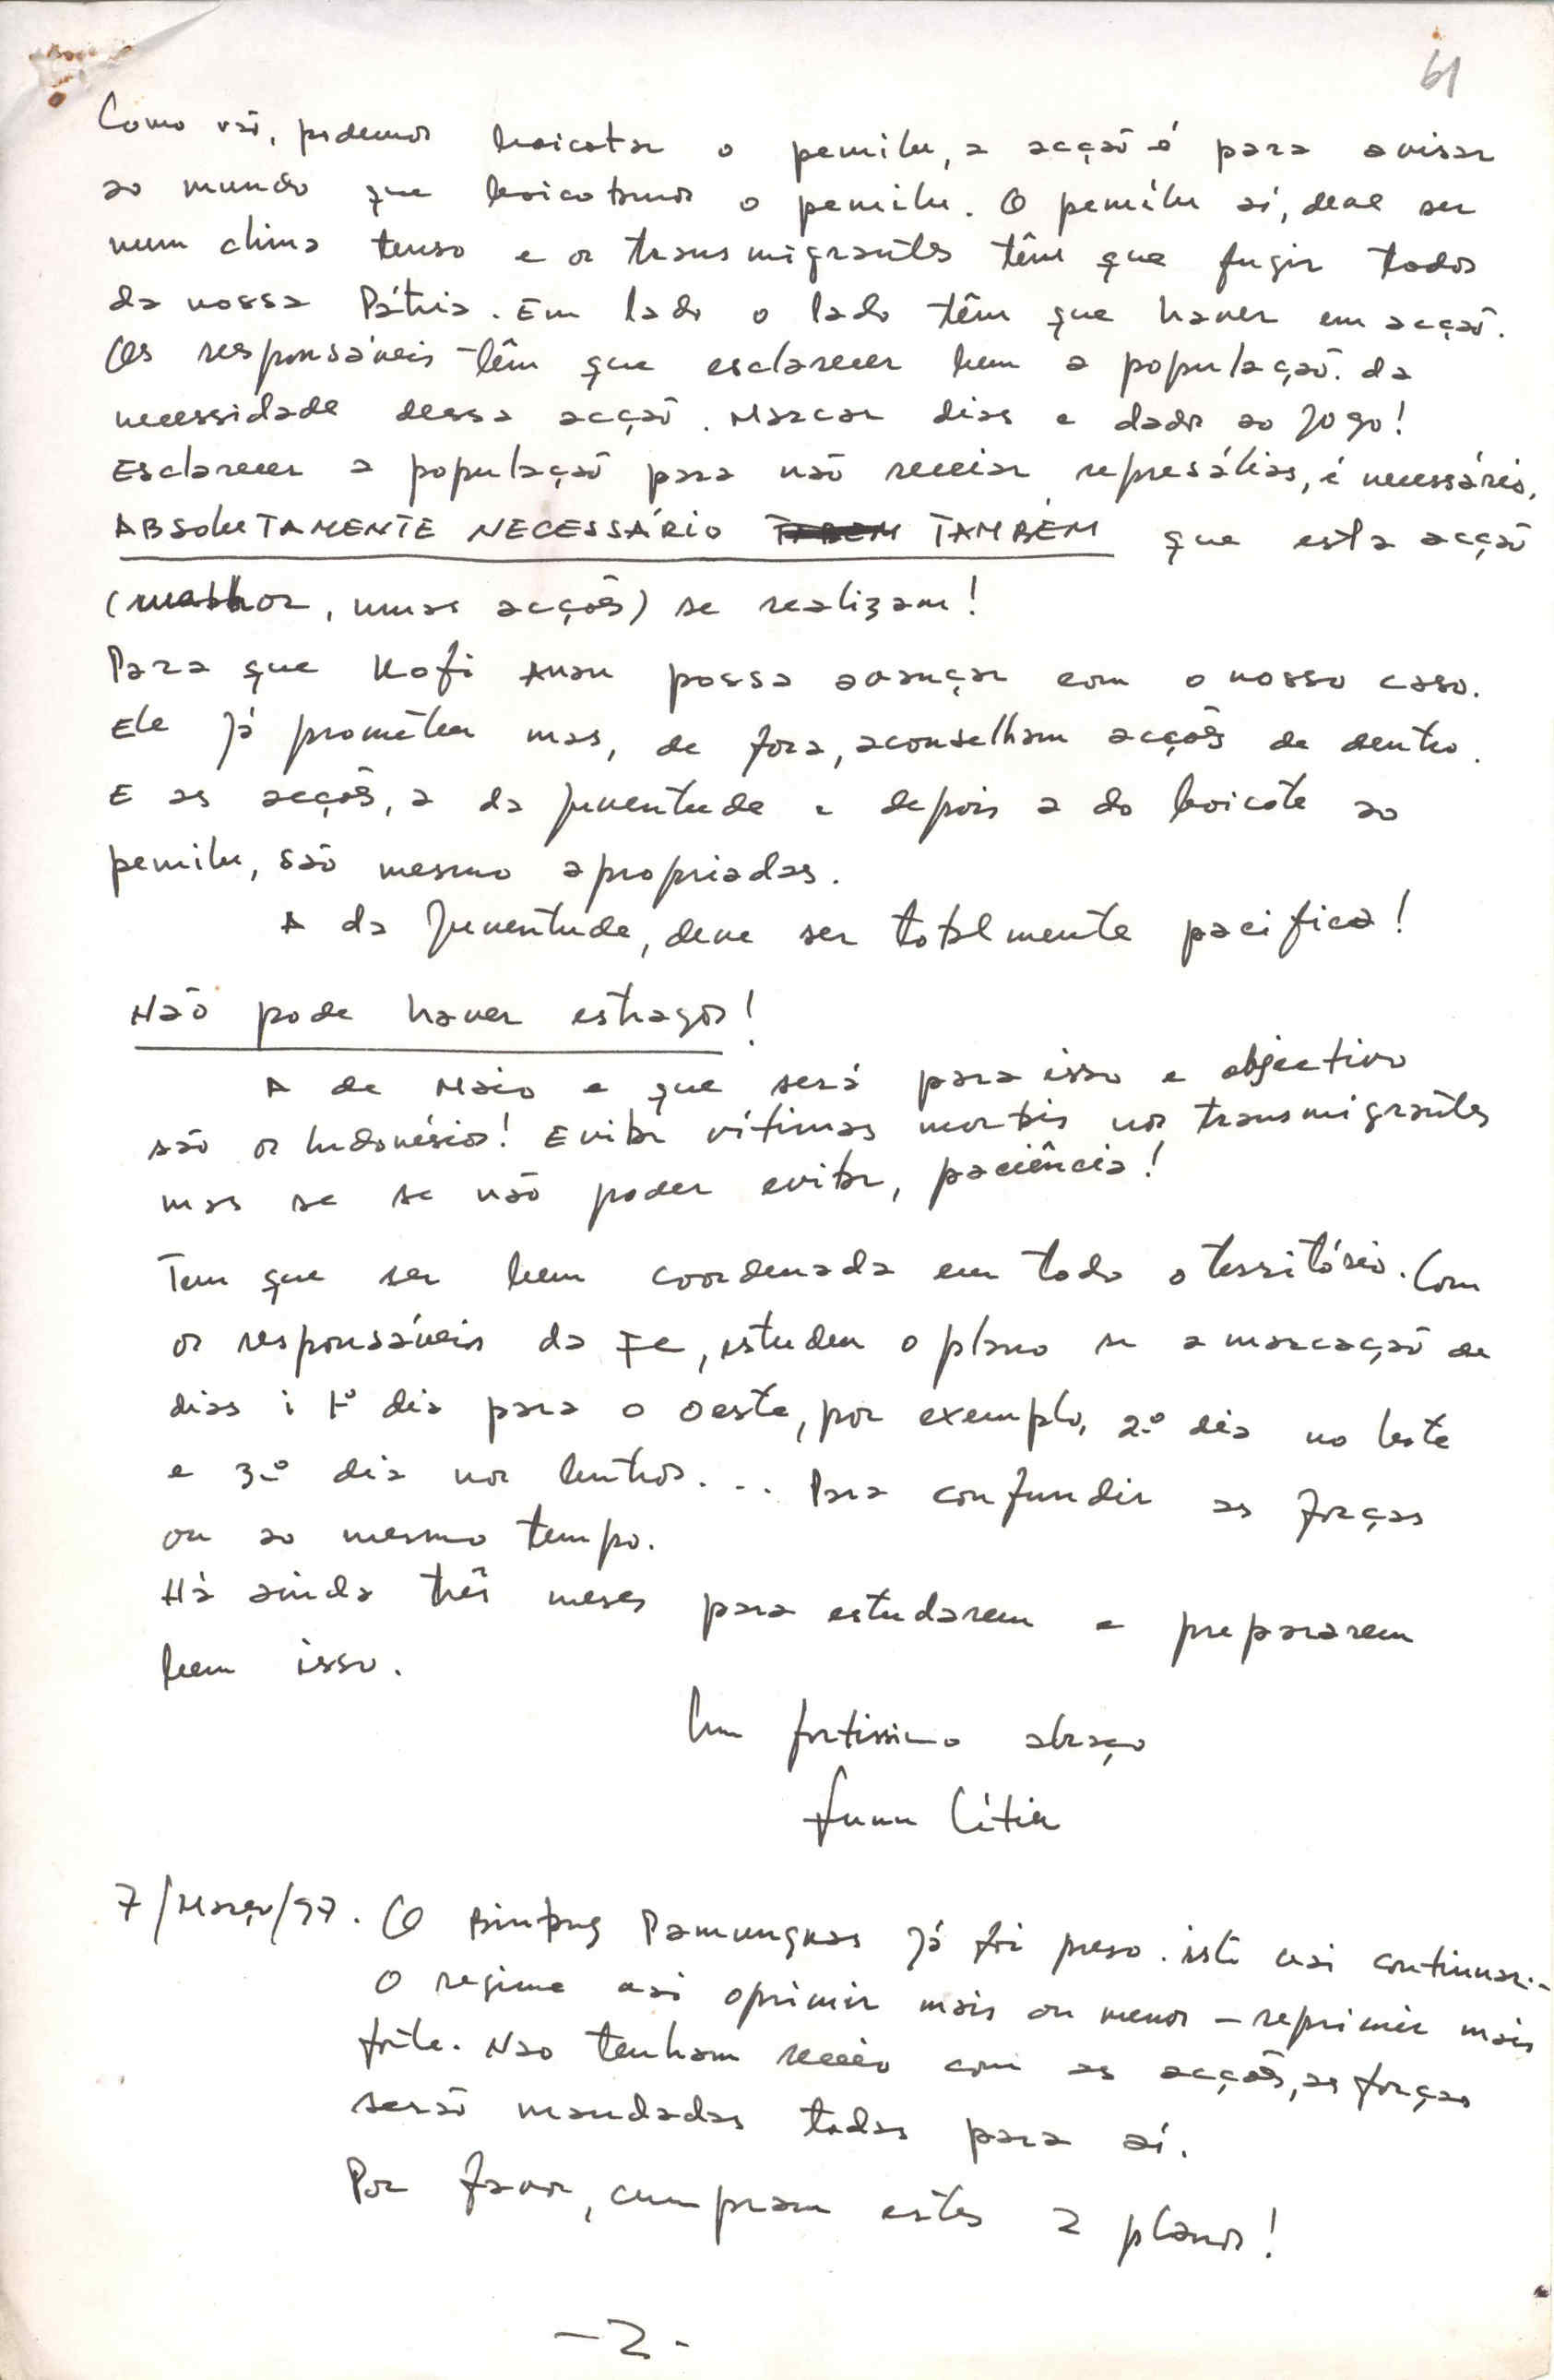 61
Como vão, podemos boicotar o pemilu, a acção é para avisar
ao mundo que boicotamos o pemilu. O pemilu aí, deve ser
num clima tenso e os transmigrantes têm que fugir todos
da nossa Pátria. Em lado o lado têm que haver em acção.
Os responsáveis têm que esclarecer bem a população da
necessidade dessa acção. Marcar dias e dados ao
Esclarecer a população para não recear represálias, é necessário,
ABSOLUTAMENTE NECESSÁRIO TAMBÉM que esta acção
(melhor, umas acções) se realizam!
Para que Kofi Anan possa avançar com o nosso caso.
Ele já prometeu mas, de fora, aconselham acções de dentro.
E as acções, a da juventude e depois a do boicote ao
pemilu, são mesmo apropriadas.
A da Juventude, deve ser totalmente pacifica!
Não pode haver estragos!
A de Maio e que será para isso e objectivo
são os Indonésios! Evitar vítimas mortais nos transmigrantes
mas se se não poder evitar, paciência!
Tem que ser bem coordenada em todo o território. Com
os responsáveis da FC, estudem o plano se a marcação de
dias i 1º dia para o oeste, por exemplo, 2º dia no leste
e 3º dia nos Centros... Para confundir as forças
ou ao mesmo tempo.
Há ainda três meses para estudarem e prepararem
bem isso.
Um fortissimo abraço
7/Março/97. O Bintang Pamungkas já foi preso. isto vai continuar..
O regime vai oprimir mais ou menos - reprimir mais
forte. Nao tenham receio com as acções, as forças
serão mandadas todas para aí.
Por favor, cumpram estes 2 planos!
-2-